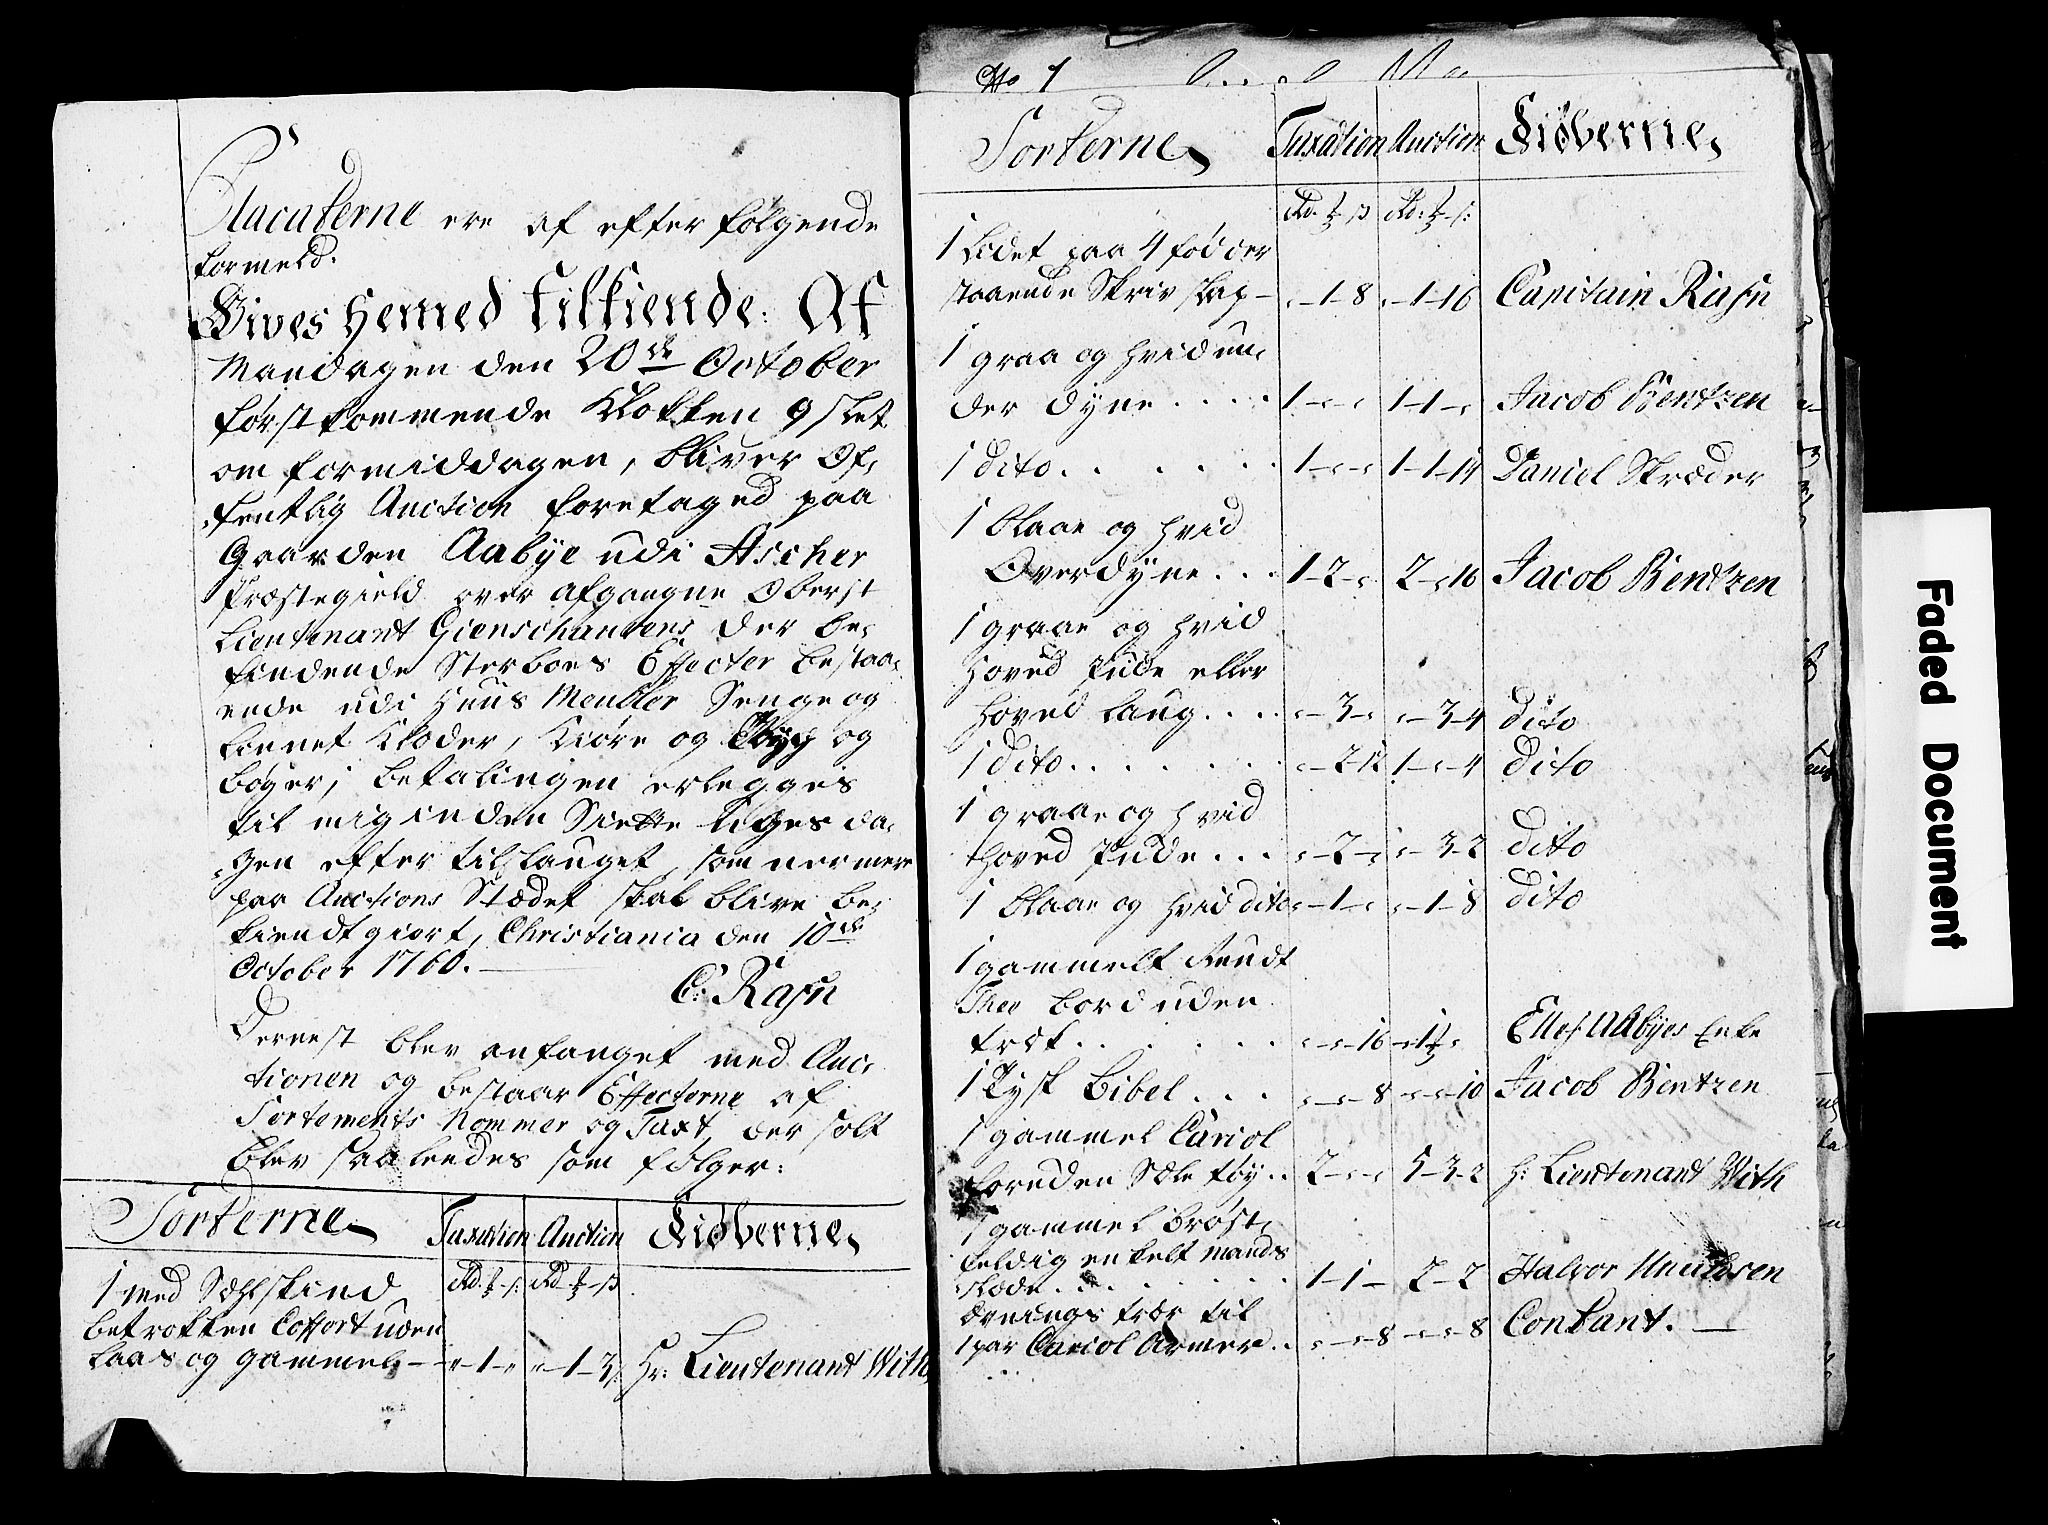 Placaterne ere af efter følgende
formeld.
Gives Hermed tilkiende: At
Mandagen den 20de October
førstkommende Klokken 9 slet
om formiddagen, bliver Of,
fentlig Auction foretaged paa
Gaarden Aabye udi Ascher
Præstegield over afgangne Oberst
Lieutenant Gienschantens der be,
findende Sterboes Effecter bestaa,
ende udi Huus Meubler Senge og
Linnet Klæder, Kiøre og og
bøger; betalingen erlegges
til mig inden Siette Uges da,
gen efter tilslauget, som nermere
paa Auctions Stædet skal blive be,
kiendtgiort, Christiania den 10de
October 1760.
C: Rasn
Dernest blev anfanget med Auc,
tionen og bestaar Effecterne af
Sortements Nommer og Taxt, der solt
blev saaledes som følger:
Sorterne Taxation Auction Kiøberne
Rd. ₰ - ß: Rd. ₰ - ß
1 med Sælskind
betrokken Coffort uden
laas og gammel - „ - 1 - „ „ - 1 - 3 Hr: Lieutenant With
No 1
Sorterne Taxation Auction Kiøberne
Rd. ₰ - ß Rd: ₰ - ß:
1 Lidet paa 4 fødder
staaende Skriv skap - „ - 1 - 8 „ - 1 - 16 Capitain Rasn
1 graa og hvid un,
der dyne .... 1 - „ - „ 1 - 1 - „ Jacob Bentzen
1 dito ..... 1 - „ - „ 1 - 1 - 14 Daniel Skræder
1 blaae og hvid
Overdyne ... 1 - 2 - „ 2 - „ 16 Jacob Bentzen
1 graae og hvid
hoved Pude eller
hoved laug .... „ - 3 - „ „ - 3 - 4 dito
1 dito ...... „ - 2 - 12 1 - „ - 4 dito
1 graae og hvid
hoved Pude ... „ - 2 - „ „ - 3 - 2 dito
1 blaae og hvid dito „ - 1 - „ „ - 1 - 8 dito
1 gammelt Rundt
Thee bord uden
træt ..... „ - „ - 16 „ - 1 - „ Ellef Aabyes Enke
1 Tysk Bibel ... „ - „ - 8 „ - „ - 10 Jacob Bentzen
1 gammel Cariol
foruden Sæle tøy .. 2 - „ - „ 5 - 3 - 2 H: Lieutenant With
1 gammel brøst,
feldig enkelt mands
slæde ...... 1 - 1 - 2 - 2 Halvor Knudsen
ævnings træ til
1 par Cariol Armer .. „ - „ - 8 „ - „ - 8 Contant. —
Faded Document